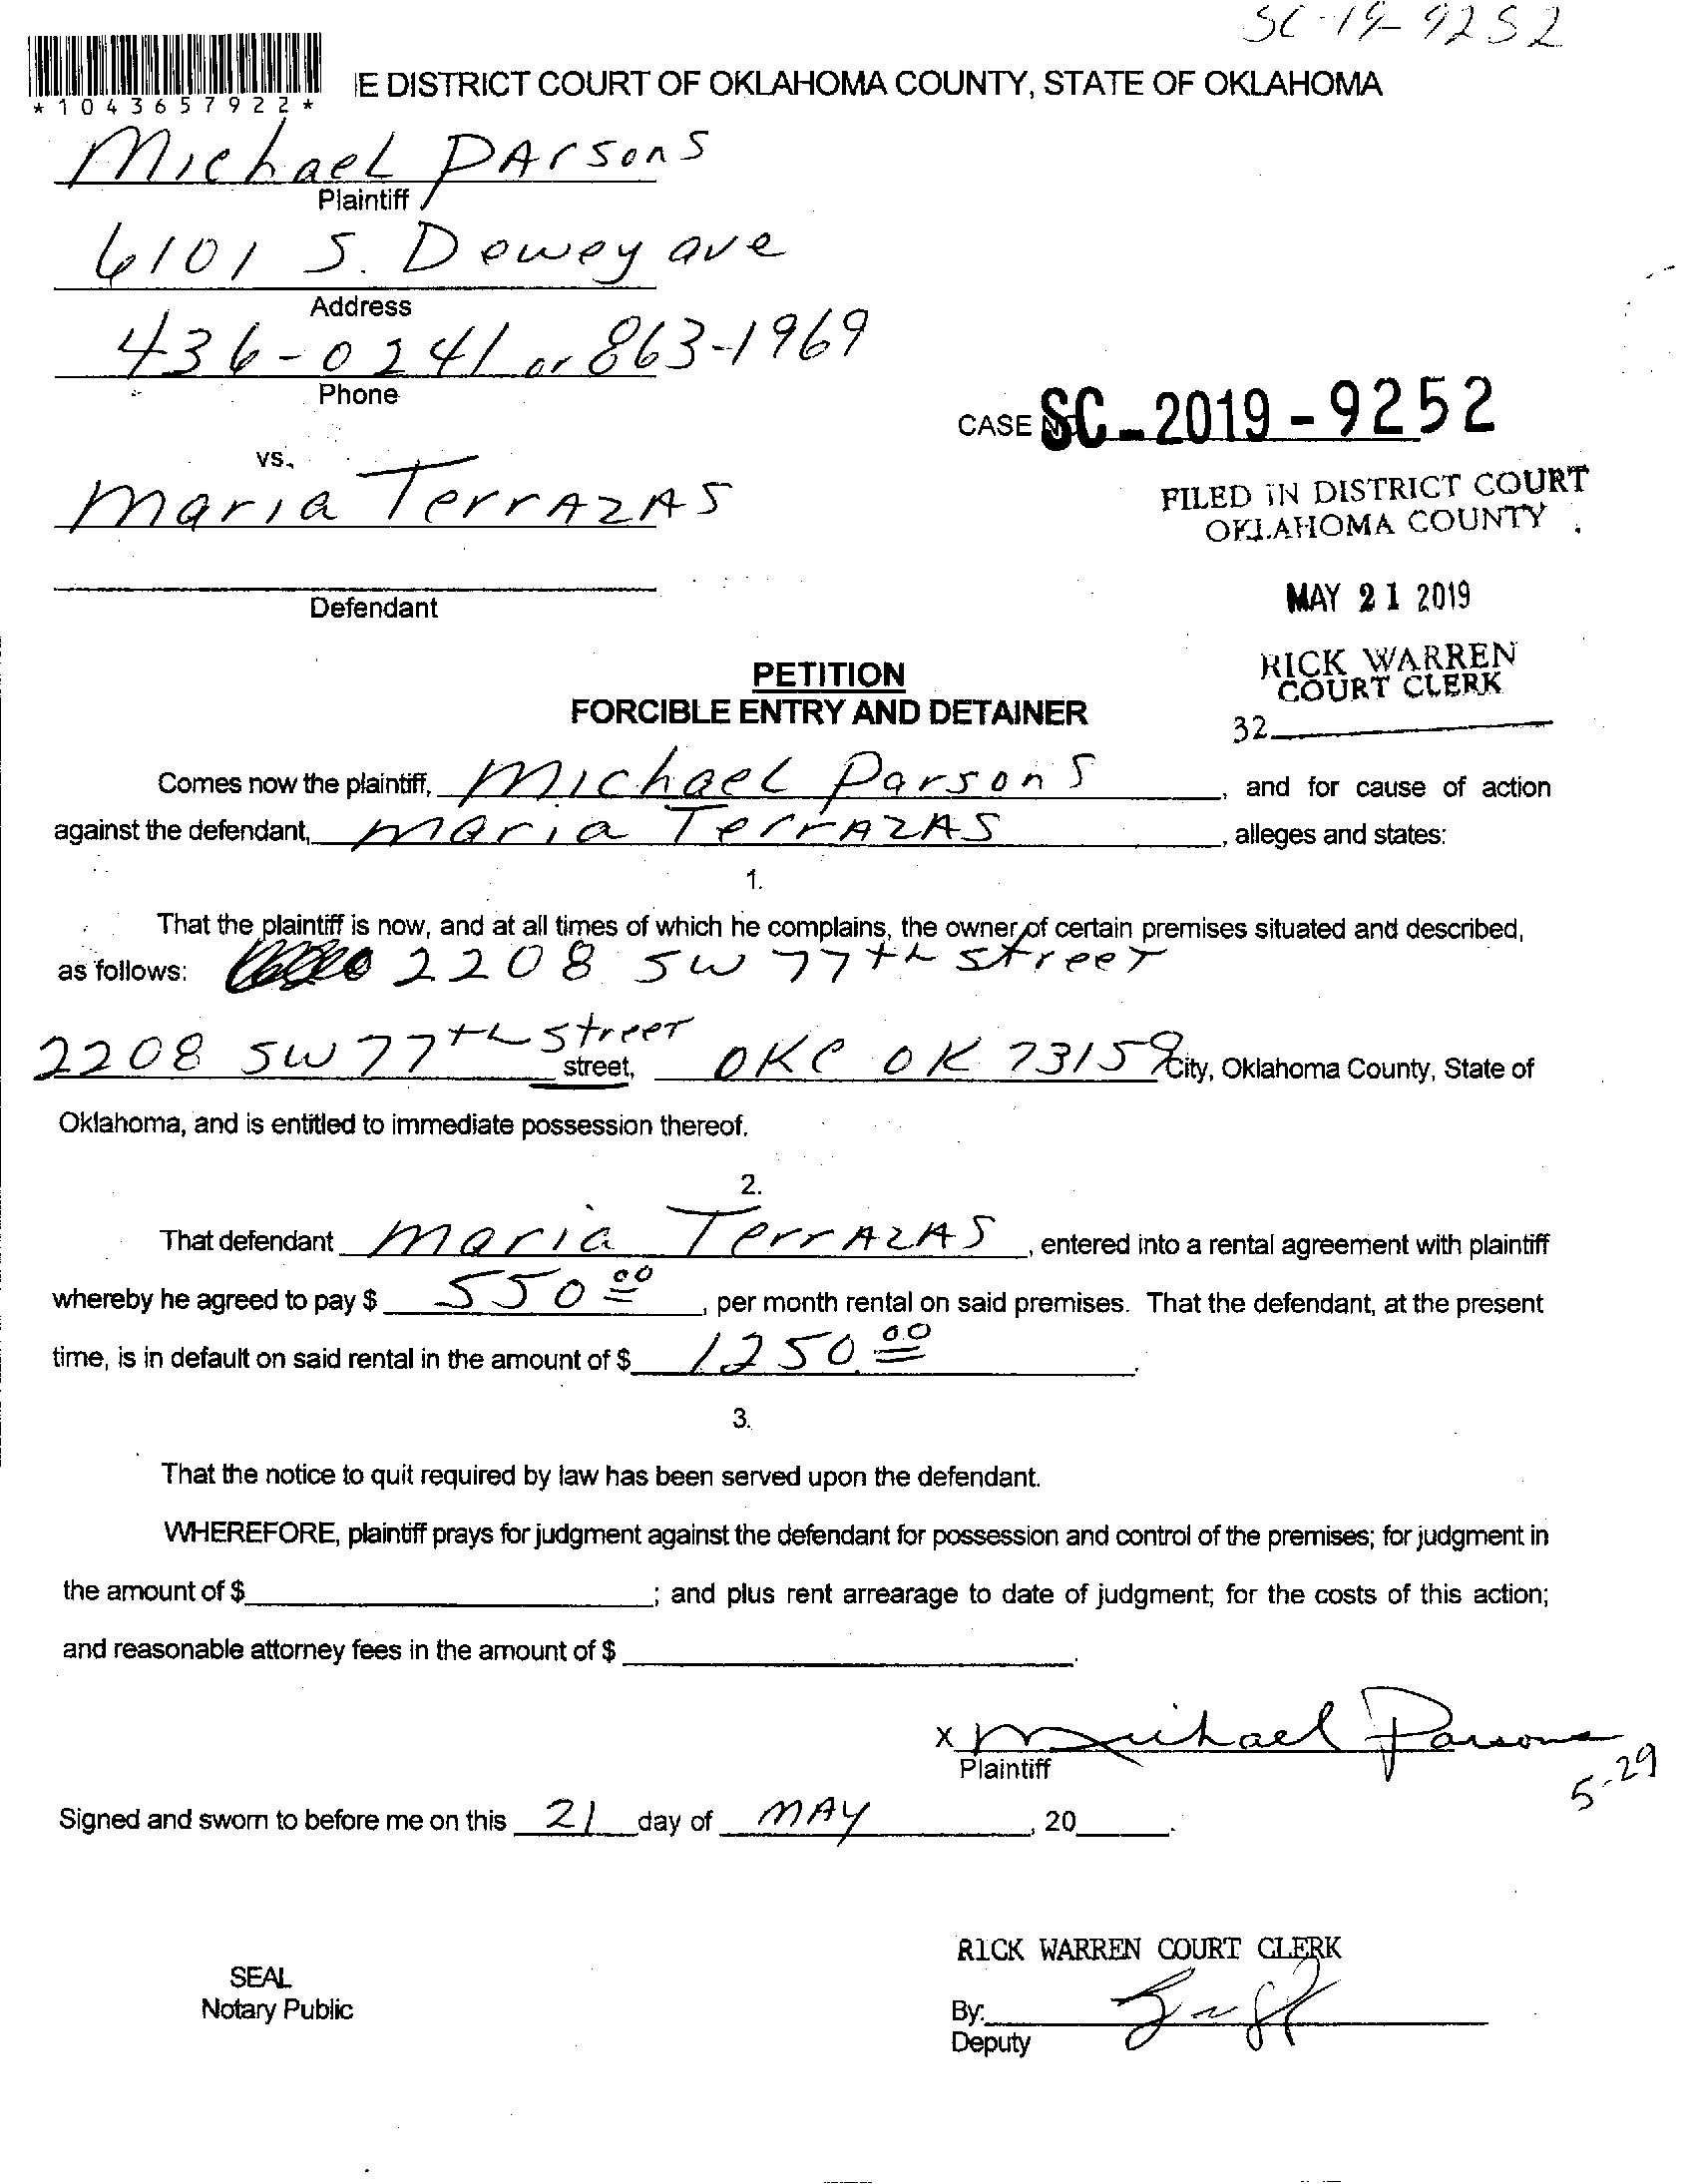 SC-19-9252
*1043657922*
IE DISTRICT COURT OF OKLAHOMA COUNTY, STATE OF OKLAHOMA
Michael PArsons
Plaintiff
6101 S. Dewey ave
Address
436-0241 or 863-1969
Phone
CASE NO. SC-2019-9252
vs.
Maria TerrAzAS
FILED IN DISTRICT COURT
OKLAHOMA COUNTY
Defendant
MAY 21 2019
RICK WARREN
COURT CLERK
32
PETITION
FORCIBLE ENTRY AND DETAINER
Comes now the plaintiff, Michael Parsons, and for cause of action
against the defendant, Maria TerrAzAS, alleges and states:
1.
That the plaintiff is now, and at all times of which he complains, the owner of certain premises situated and described,
as follows: 2208 SW 77th Street
2208 SW 77th Street street, OKC OK 73159 City, Oklahoma County, State of
Oklahoma, and is entitled to immediate possession thereof.
2.
That defendant Maria TerrAzAS, entered into a rental agreement with plaintiff
whereby he agreed to pay $ 550.00, per month rental on said premises. That the defendant, at the present
time, is in default on said rental in the amount of $ 1250.00.
3.
That the notice to quit required by law has been served upon the defendant.
WHEREFORE, plaintiff prays for judgment against the defendant for possession and control of the premises; for judgment in
the amount of $ ; and plus rent arrearage to date of judgment; for the costs of this action;
and reasonable attorney fees in the amount of $ .
X Michael Parsons
Plaintiff
5-29
Signed and sworn to before me on this 21 day of MAY, 20 .
RICK WARREN COURT CLERK
SEAL
Notary Public
By:
Deputy